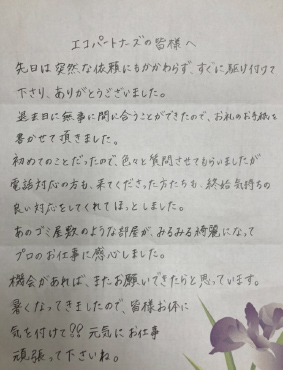 エコパートナーズの皆様へ
先日は突然な依頼にもかかわらず、すぐに駆け付けて
下さり、ありがとうございました。
退去日に無事に間に合うことができたので、お礼のお手紙を
書かせて頂きました。
初めてのことだったので、色々と質問させてもらいましたが
電話対応の方も、来てくださった方たちも、終始気持ちの
良い対応をしてくれてほっとしました。
あのゴミ屋敷のような部屋が、みるみる綺麗になって
プロのお仕事に感心しました。
機会があれば、またお願いできたらと思っています。
暑くなってきましたので、皆様お体に
気を付けて!?元気にお仕事
頑張って下さいね。